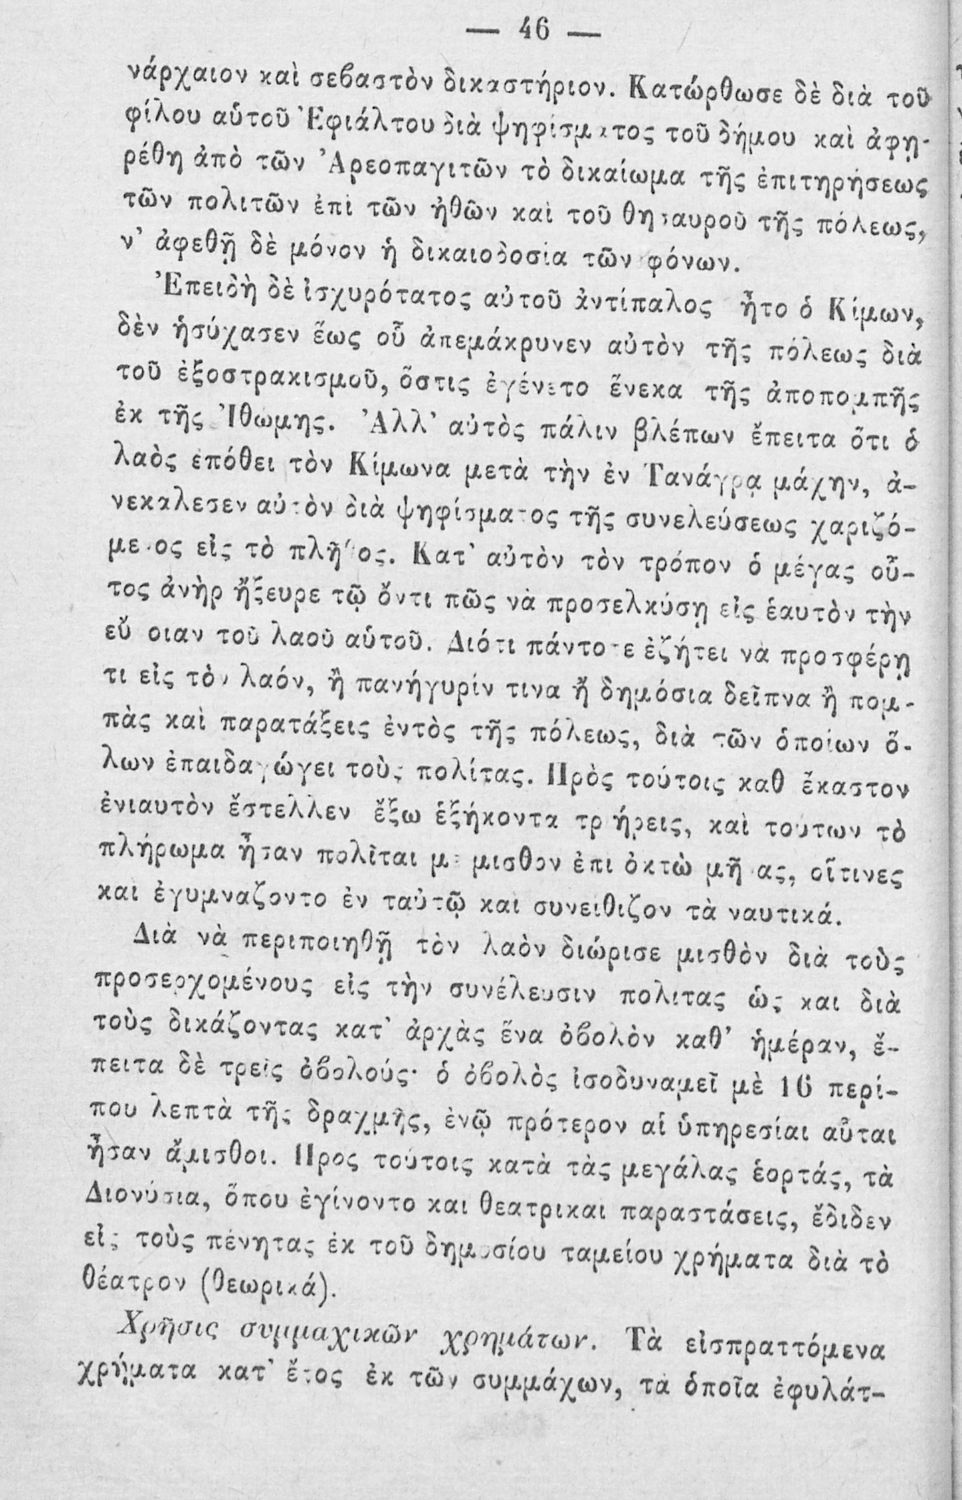 — 46 —
νάρχαιον καὶ σεβαστὸν δικαστήριον. Κατώρθωσε δὲ διὰ τοῦ
φίλου αὑτοῦ Ἐφιάλτου διὰ ψηφίσματος τοῦ δήμου καὶ ἀφῃ-
ρέθη ἀπὸ τῶν Ἀρεοπαγιτῶν τὸ δικαίωμα τῆς ἐπιτηρήσεως
τῶν πολιτῶν ἐπὶ τῶν ἠθῶν καὶ τοῦ θησαυροῦ τῆς πόλεως,
ν' ἀφεθῇ δὲ μόνον ἡ δικαιοδοσία τῶν φόνων.
Ἐπειδὴ δὲ ἰσχυρότατος αὐτοῦ ἀντίπαλος ἦτο ὁ Κίμων,
δὲν ἡσύχασεν ἕως οὗ ἀπεμάκρυνεν αὐτὸν τῆς πόλεως διὰ
τοῦ ἐξοστρακισμοῦ, ὅστις ἐγένετο ἕνεκα τῆς ἀποπομπῆς
ἐκ τῆς Ἰθώμης. Ἀλλ' αὐτὸς πάλιν βλέπων ἔπειτα ὅτι ὁ
λαὸς ἐπόθει τὸν Κίμωνα μετὰ τὴν ἐν Τανάγρᾳ μάχην, ἀ-
νεκάλεσεν αὐτὸν διὰ ψηφίσματος τῆς συνελεύσεως χαριζό-
μενος εἰς τὸ πλῆθος. Κατ' αὐτὸν τὸν τρόπον ὁ μέγας οὗ-
τος ἀνὴρ ἤξευρε τῷ ὄντι πῶς νὰ προσελκύσῃ εἰς ἑαυτὸν τὴν
εὔνοιαν τοῦ λαοῦ αὑτοῦ. Διότι πάντοτε ἐζήτει νὰ προσφέρῃ
τι εἰς τὸν λαόν, ἢ πανήγυρίν τινα ἢ δημόσια δεῖπνα ἢ πομ-
πὰς καὶ παρατάξεις ἐντὸς τῆς πόλεως, διὰ τῶν ὁποίων ὅ-
λων ἐπαιδαγώγει τοὺς πολίτας. Πρὸς τούτοις καθ ἕκαστον
ἐνιαυτὸν ἔστελλεν ἔξω ἑξήκοντα τριήρεις, καὶ τούτων τὸ
πλήρωμα ἦσαν πολῖται μὲ μισθὸν ἐπὶ ὀκτὼ μῆνας, οἵτινες
καὶ ἐγυμνάζοντο ἐν ταὐτῷ καὶ συνείθιζον τὰ ναυτικά.
Διὰ νὰ περιποιηθῇ τὸν λαὸν διώρισε μισθὸν διὰ τοὺς
προσερχομένους εἰς τὴν συνέλευσιν πολίτας ὡς καὶ διὰ
τοὺς δικάζοντας κατ' ἀρχὰς ἕνα ὀβολὸν καθ' ἡμέραν, ἔ-
πειτα δὲ τρεῖς ὀβολούς· ὁ ὀβολὸς ἰσοδυναμεῖ μὲ 16 περί-
που λεπτὰ τῆς δραχμῆς, ἐνῷ πρότερον αἱ ὑπηρεσίαι αὗται
ἦσαν ἄμισθοι. Πρὸς τούτοις κατὰ τὰς μεγάλας ἑορτάς, τὰ
Διονύσια, ὅπου ἐγίνοντο καὶ θεατρικαὶ παραστάσεις, ἔδιδεν
εἰς τοὺς πένητας ἐκ τοῦ δημοσίου ταμείου χρήματα διὰ τὸ
θέατρον (θεωρικά).
Χρῆσις συμμαχικῶν χρημάτων. Τὰ εἰσπραττόμενα
χρήματα κατ' ἔτος ἐκ τῶν συμμάχων, τὰ ὁποῖα ἐφυλάτ-